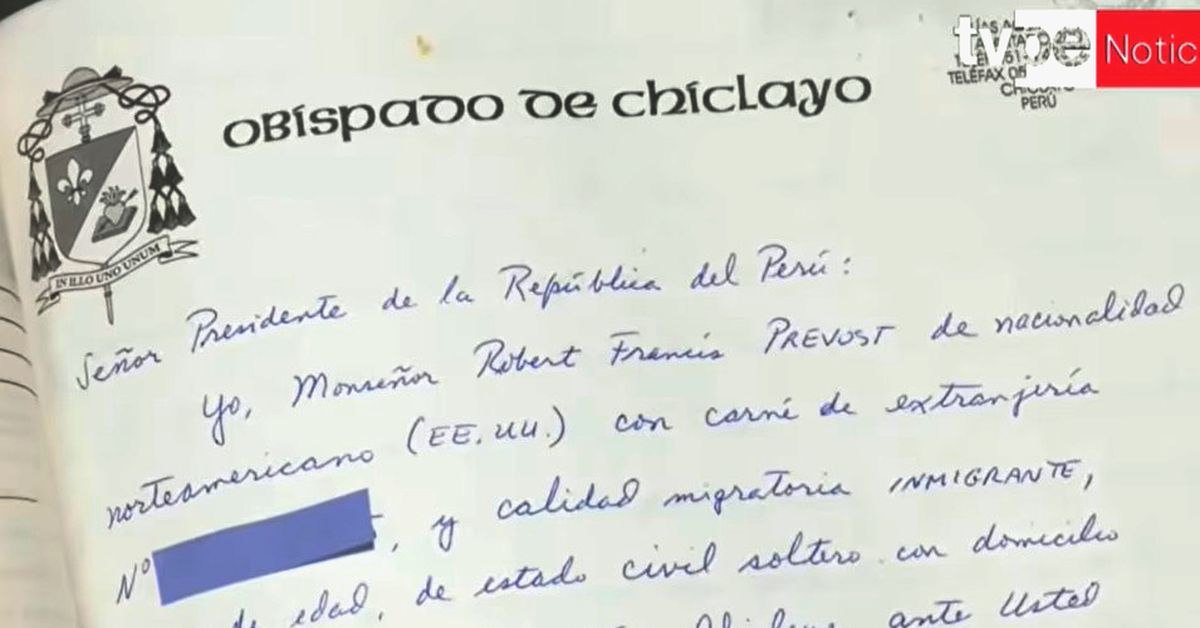 tvpe Notic
TELÉFAX
PERÚ
OBISPADO DE CHICLAYO
IN ILLO UNO UNUM
Señor Presidente de la República del Perú:
Yo, Monseñor Robert Francis PREVOST de nacionalidad
norteamericano (EE.UU.) con carné de extranjería
Nº , y calidad migratoria INMIGRANTE,
de edad, de estado civil soltero con domicilio
ante Usted